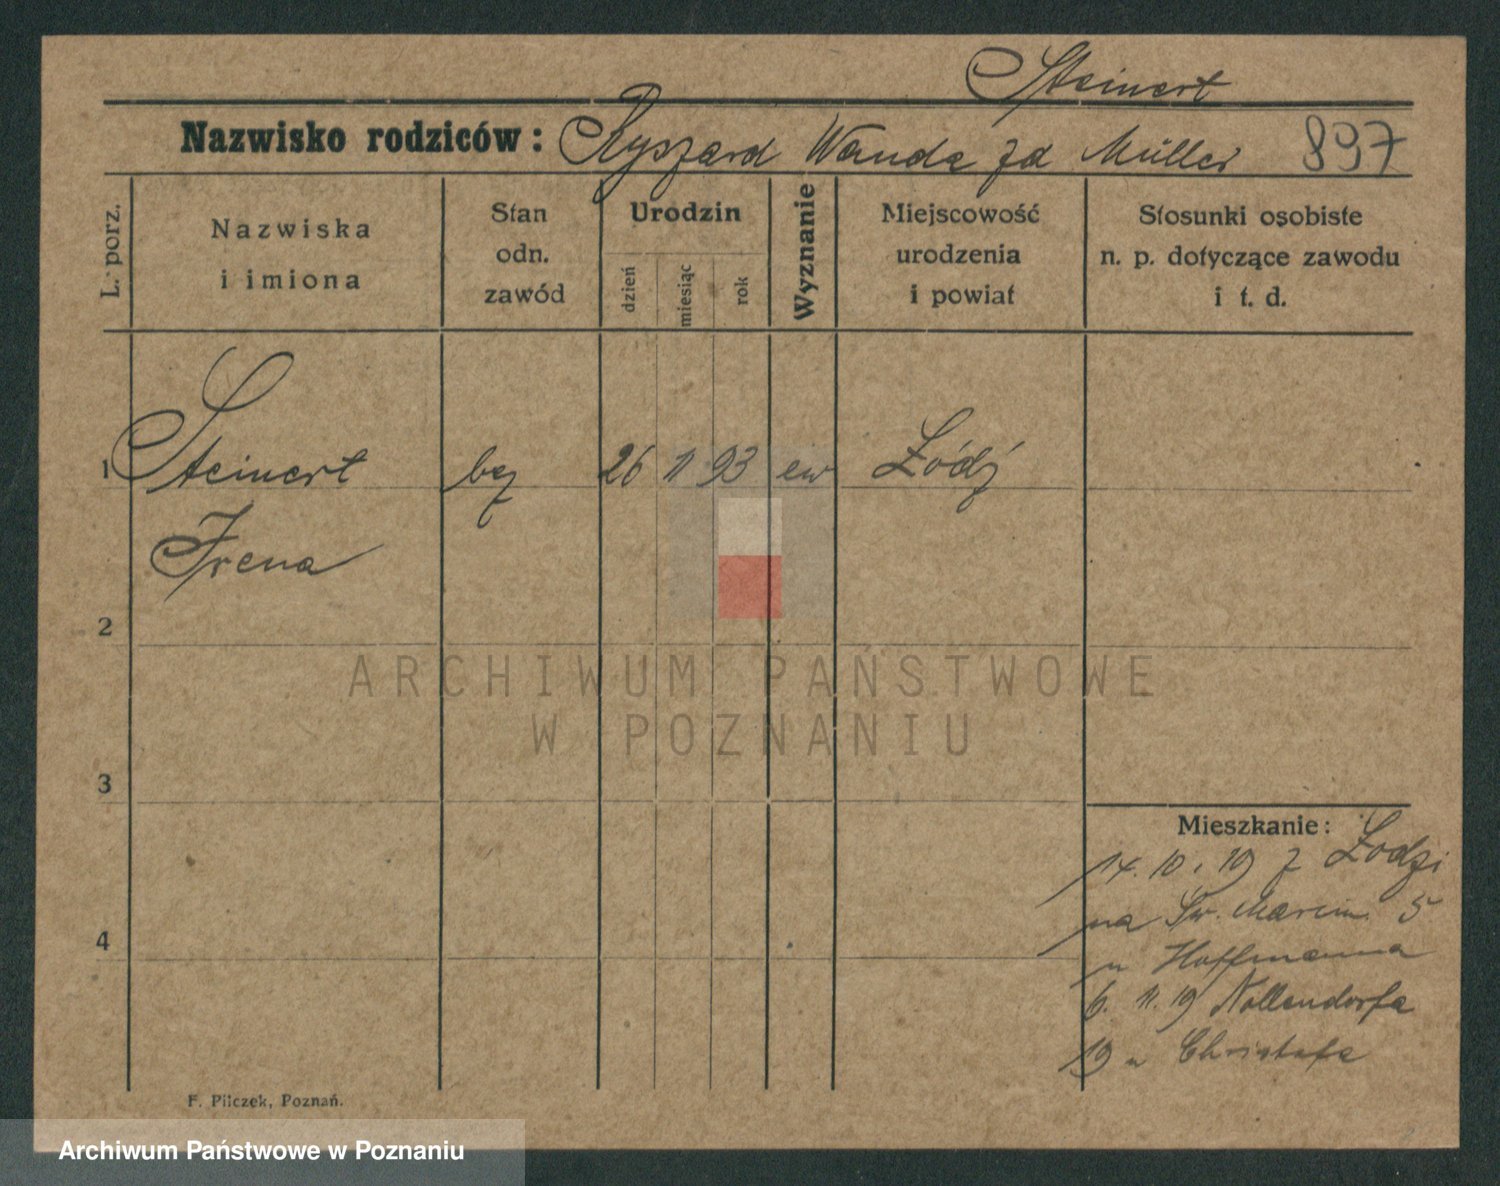 Steinert
Nazwisko rodziców: Ryszard Wanda zd Müller 897
L. porz.
Nazwiska
i imiona
Stan
odn.
zawód
Urodzin
dzień
miesiąc
rok
Wyznanie
Miejscowość
urodzenia
i powiat
Stosunki osobiste
n. p. dotyczące zawodu
i t. d.
1 Steinert bez 26 11 93 ew Łódź
Irena
2
3
4
ARCHIWUM PAŃSTWOWE
W POZNANIU
Mieszkanie:
14.10.19 z Łodzi
na Św. Marcin 5
u Hoffmanna
6.11.19 Nollendorfa
19 u Christofa
F. Pilczek, Poznań.
Archiwum Państwowe w Poznaniu